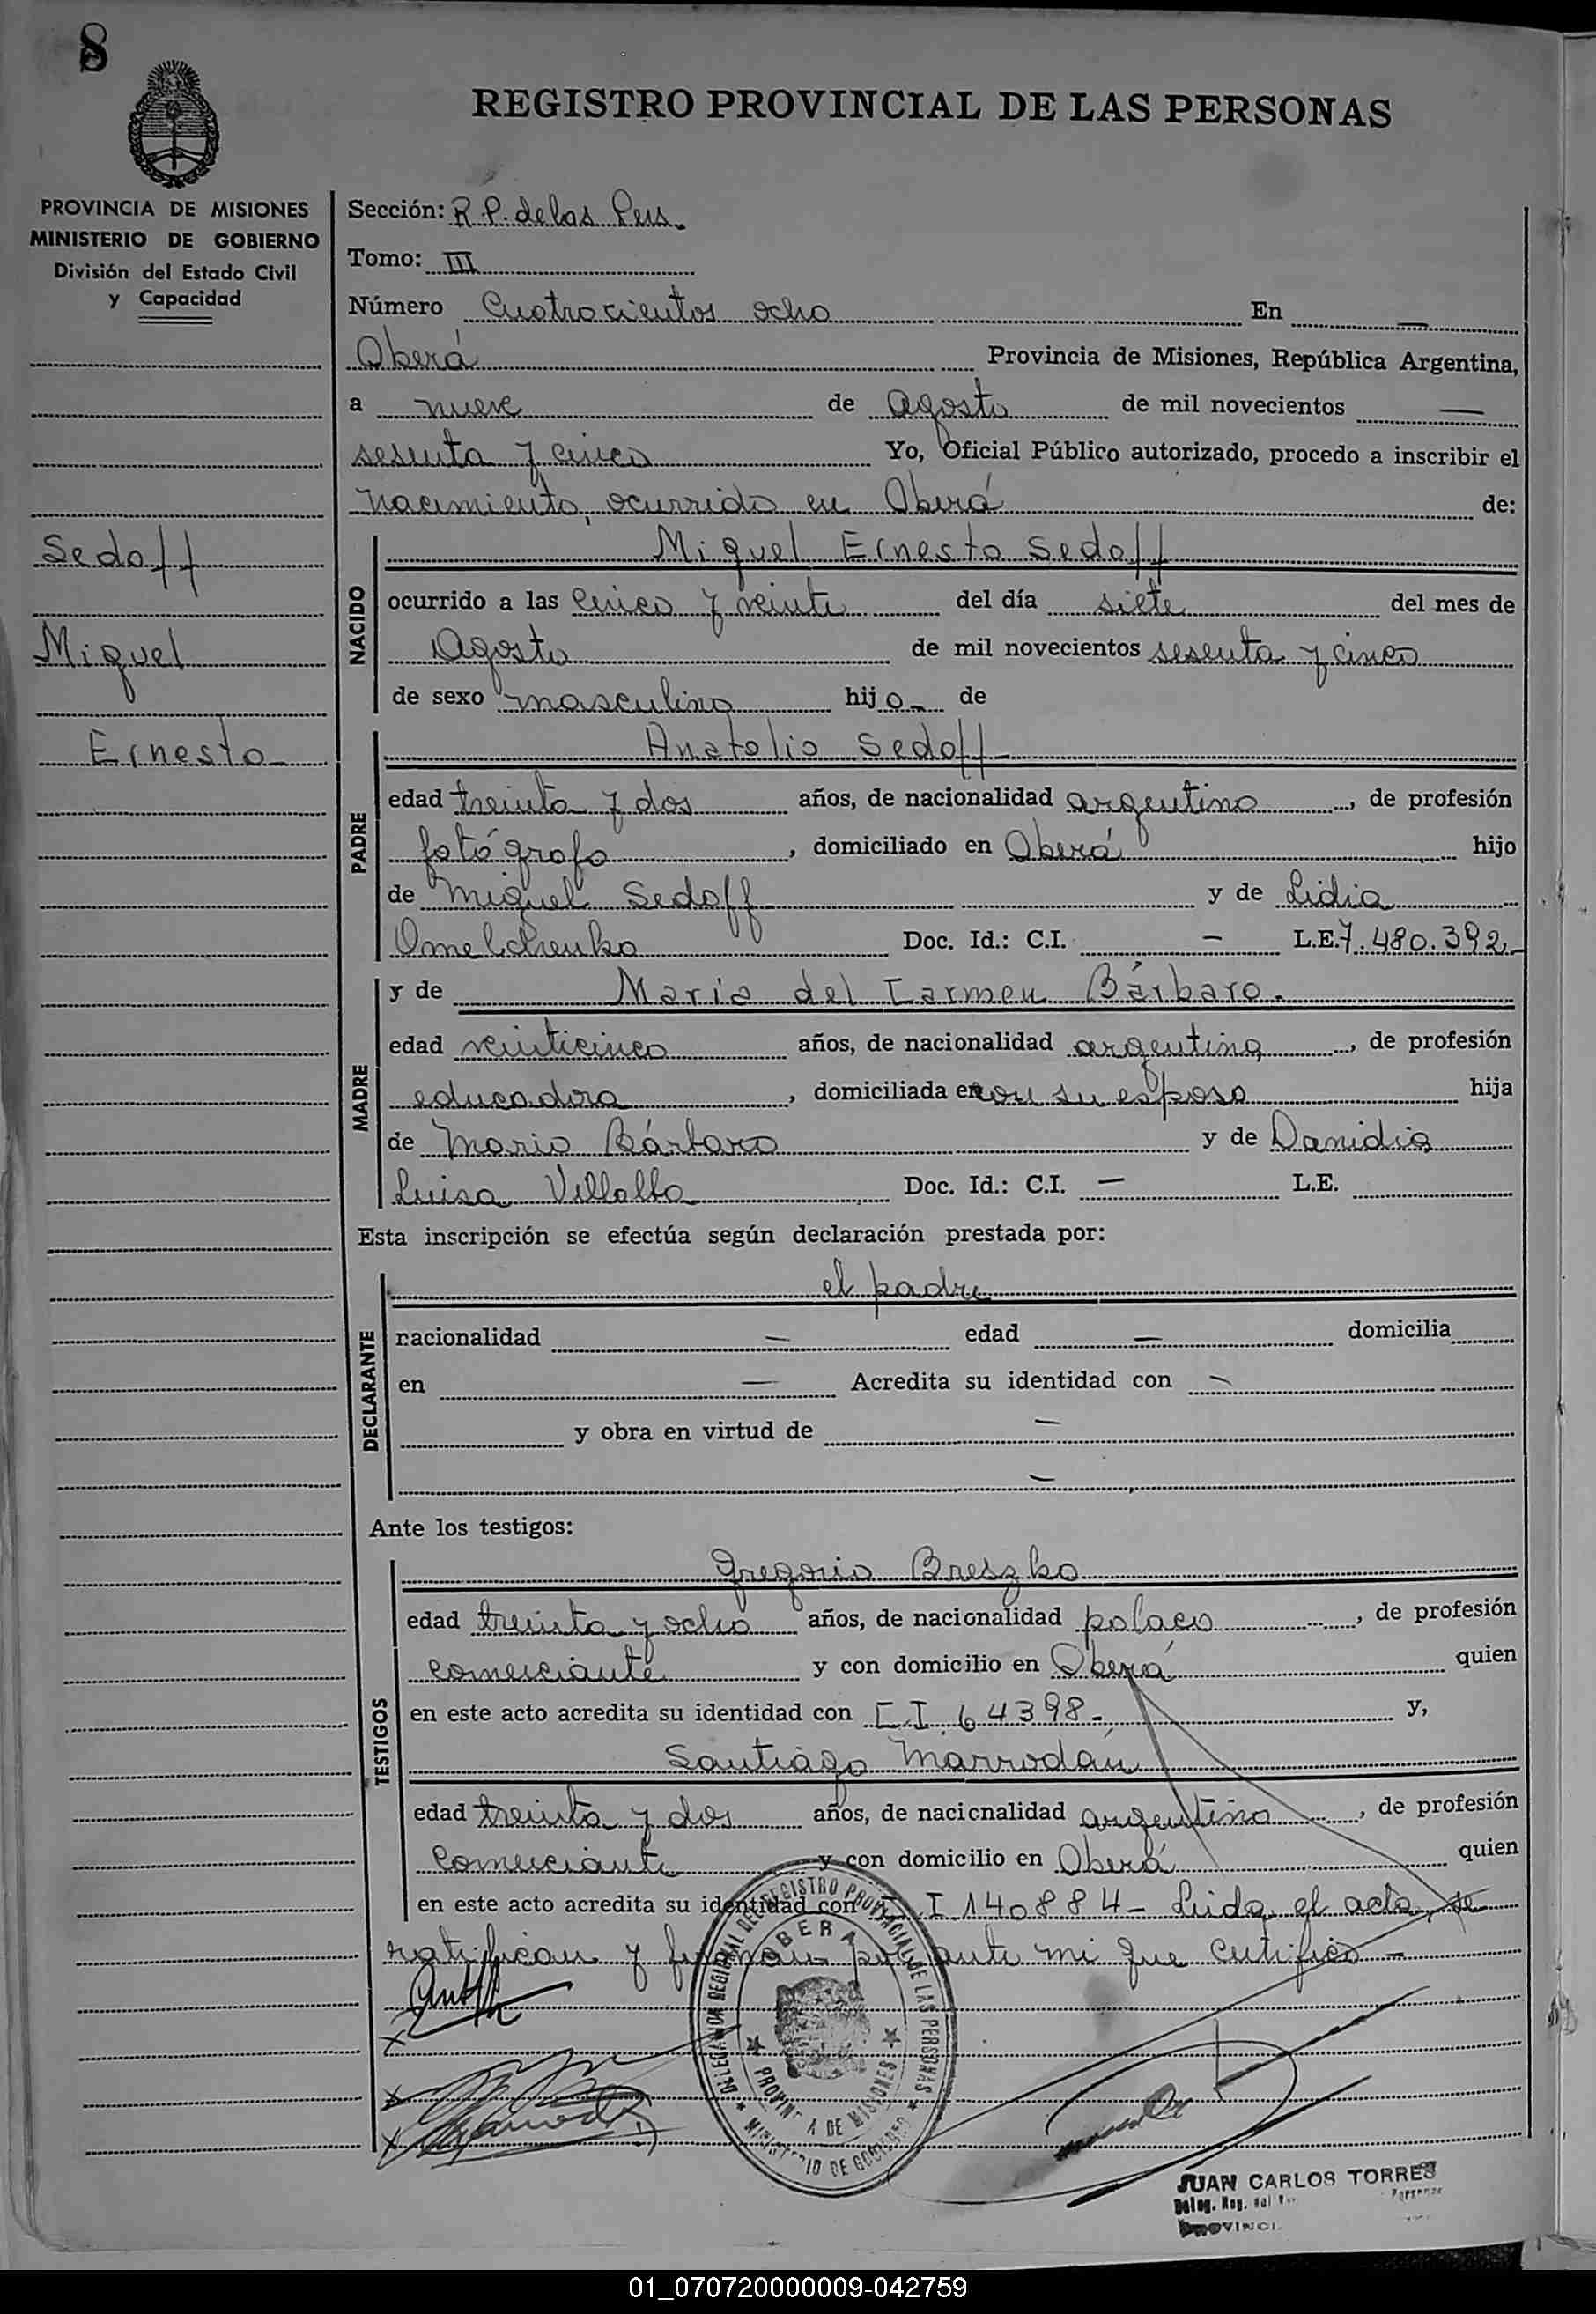 8
REGISTRO PROVINCIAL DE LAS PERSONAS
PROVINCIA DE MISIONES
MINISTERIO DE GOBIERNO
División del Estado Civil
y Capacidad
Sedoff
Miguel
Ernesto
Sección: R.P. de las Pers.
Tomo: III
Número Cuatrocientos ocho En —
Oberá Provincia de Misiones, República Argentina,
a nueve de Agosto de mil novecientos —
sesenta y cinco Yo, Oficial Público autorizado, procedo a inscribir el
nacimiento, ocurrido en Oberá de:
NACIDO
Miguel Ernesto Sedoff
ocurrido a las cinco y veinte del día siete del mes de
Agosto de mil novecientos sesenta y cinco
de sexo masculino hijo de
PADRE
Anatolio Sedoff
edad treinta y dos años, de nacionalidad argentino, de profesión
fotógrafo, domiciliado en Oberá hijo
de Miguel Sedoff y de Lidia
Omelchenko Doc. Id.: C.I. — L.E. 7.480.392
MADRE
y de Maria del Carmen Bárbaro.
edad veinticinco años, de nacionalidad argentina, de profesión
educadora, domiciliada en con su esposo hija
de Mario Bárbaro y de Danidia
Luisa Villalba Doc. Id.: C.I. — L.E.
Esta inscripción se efectúa según declaración prestada por:
DECLARANTE
el padre
nacionalidad — edad — domicilia
en — Acredita su identidad con —
y obra en virtud de —
—
Ante los testigos:
TESTIGOS
Gregorio Breszko
edad treinta y ocho años, de nacionalidad polaco, de profesión
comerciante y con domicilio en Oberá quien
en este acto acredita su identidad con C.I. 64398- y,
Santiago Marrodán
edad treinta y dos años, de nacicnalidad argentino, de profesión
comerciante y con domicilio en Oberá quien
en este acto acredita su identidad con C.I 140884- Leida el acta, se
ratifican y firman por ante mi que certifico -
DELEGACION REGIONAL DEL REGISTRO PROVINCIAL DE LAS PERSONAS
OBERA
PROVINCIA DE MISIONES
MINISTERIO DE GOBIERNO
JUAN CARLOS TORRES
Deleg. Reg. del
PROVINCI
01_070720000009-042759